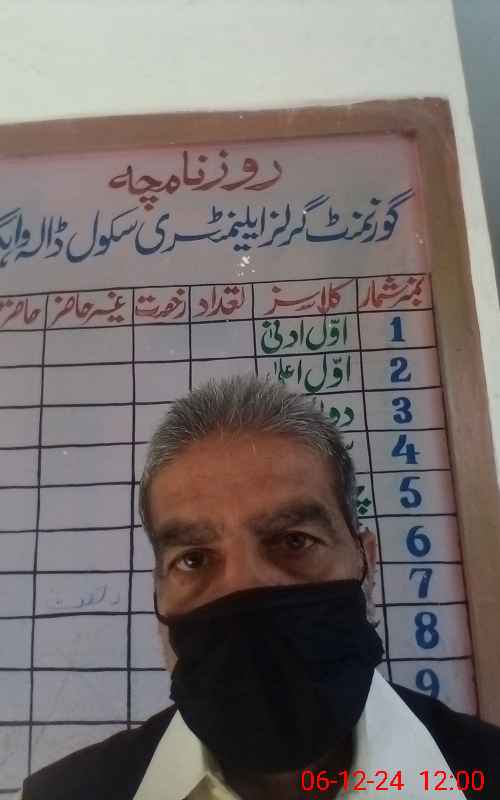 روزنامچہ
گورنمنٹ گرلز ایلیمنٹری سکول ڈالہ واہگہ
نمبر شمار کلاسز تعداد رخصت غیر حاضر حاضر
1 اوّل ادنیٰ
2 اوّل اعلیٰ
3
4
5
6
7
8
9
06-12-24 12:00